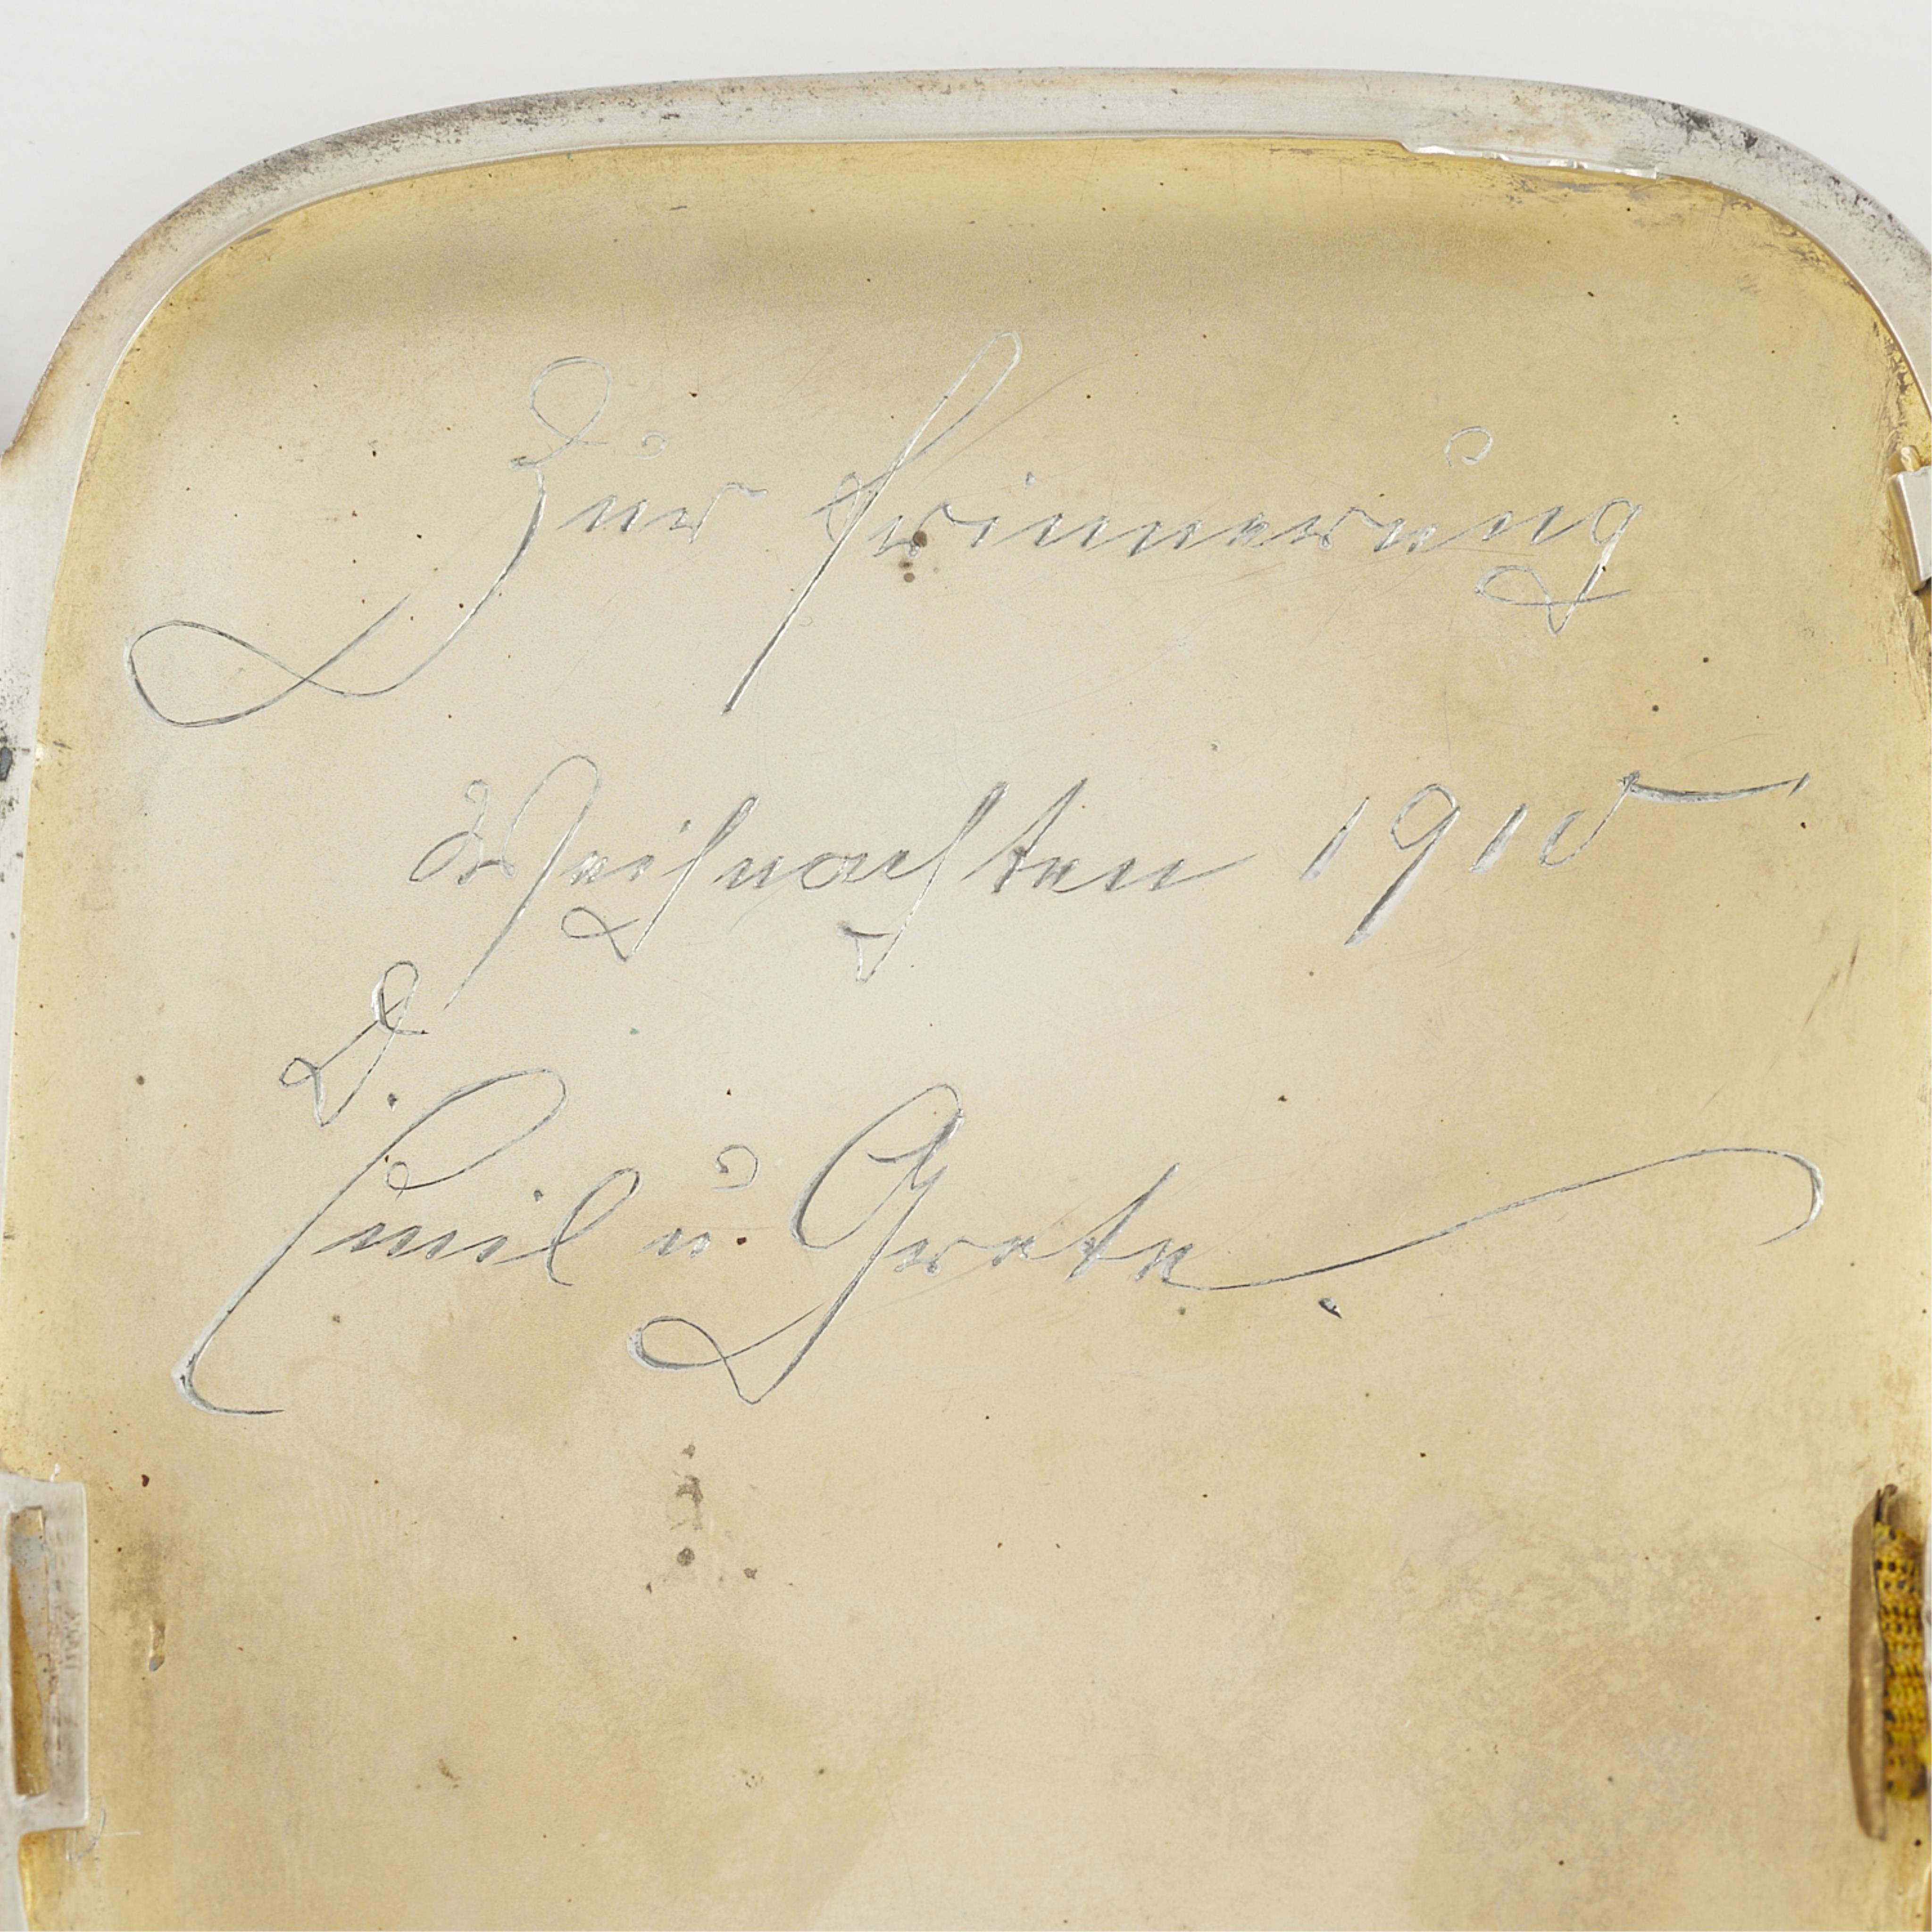 Zur Erinnerung
Weihnachten 1910
D.
Emil u. Grete.